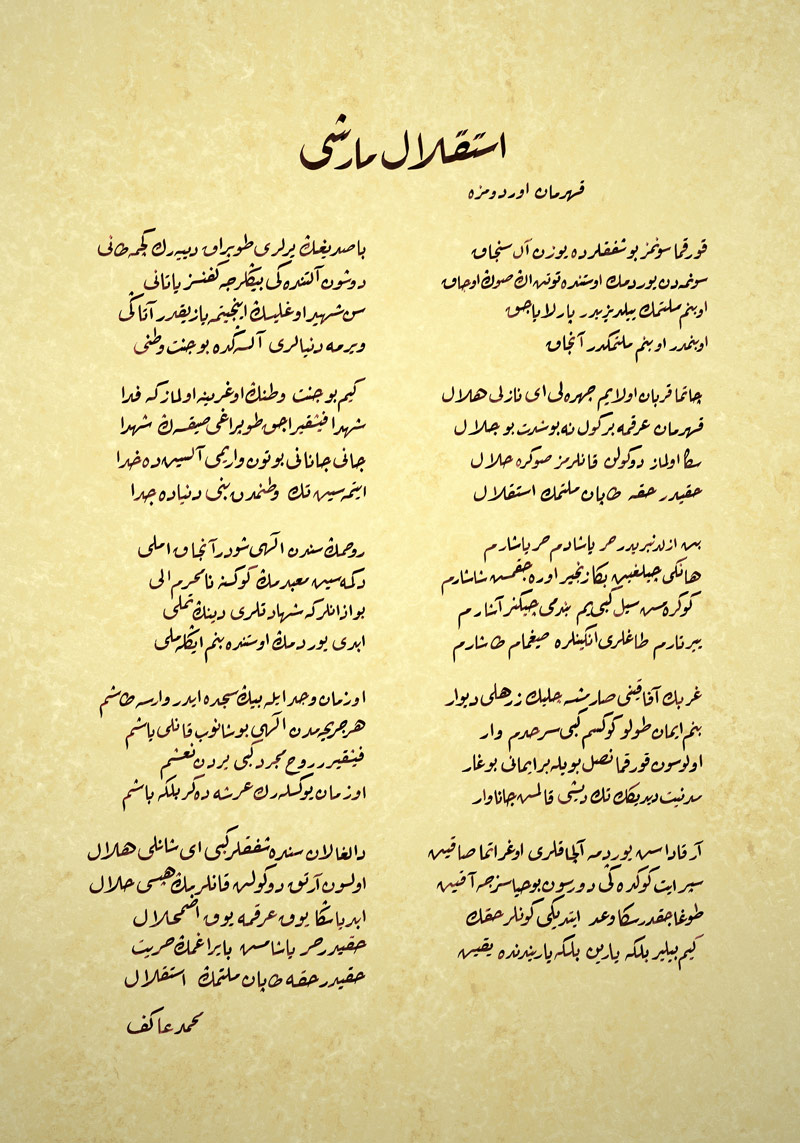 استقلال مارشى
قهرمان اوردومزه
قورقما سونمز بو شفقلرده يوزن آل سنجاق
سونمه دن يوردمك اوستنده توتن اڭ صوڭ اوجاق
او بنم ملتمڭ ييلديزيدر پارلاياجق
او بنمدر او بنم ملتمڭدر آنجاق
چاتما قربان اولايم چهره ڭى اى نازلى هلال
قهرمان عرقمه بر كول نه بو شدت بو جلال
سڭا اولماز دوكولن قانلرمز صوكره حلال
حقيدر حقه طاپان ملتمڭ استقلال
بن ازلدنبريدر حر ياشادم حر ياشارم
هانكى چيلغين بڭا زنجير اوره جقمش شاشارم
كوكره مش سيل كبى يم بندمى چيكنر آشارم
ييرتارم طاغلرى انكينلره صيغمام طاشارم
غربڭ آفاقينى صارمشسه چليك زرهلى ديوار
بنم ايمان طولو كوكسم كبى سرحدم وار
اولوسون قورقما نصل بويله بر ايمانى بوغار
مدنيت ديديكڭ تك ديشى قالمش جاناوار
آرقاداش يوردمه آلچاقلرى اوغراتما صاقين
سپر ايت كوكده كى دورسون بو حياسزجه آقين
طوغاجقدر سڭا وعد ايتديكى كونلر حقڭ
كيم بيلير بلكه يارين بلكه ياريندنده يقين
باصديغڭ يرلرى طوپراق دييه رك كچمه طانى
دوشون آلتنده كى بيڭلرجه كفنسز ياتانى
سن شهيد اوغليسڭ اينجيتمه يازيقدر آتاڭى
ويرمه دنيالرى آلسه ڭده بو جنت وطنى
كيم بو جنت وطنڭ اوغرينه اولماز كه فدا
شهدا فيشقيراجق طوپراغى صيقسه ڭ شهدا
جانى جانانى بوتون واريمى آلسين ده خدا
ايتمه سين تك وطنمدن بنى دنياده جدا
روحمڭ سندن الهى شودر آنجاق املى
دكمه سين معبدمڭ كوكسنه نامحرم الى
بو اذانلر كه شهادتلرى دينڭ تملى
ابدى يوردمڭ اوستنده بنم ايڭله ملى
او زمان وجد ايله بيڭ سجده ايدر وارسه طاشم
هر جريحه مدن الهى بوشانوب قانلى ياشم
فيشقيرر روح مجرد كبى يردن نعشم
او زمان يوكسله رك عرشه ده كر بلكه باشم
دالغالان سنده شفقلر كبى اى شانلى هلال
اولسون آرتق دوكولن قانلرمڭ هپسى حلال
ابديا سڭا يوق عرقمه يوق اضمحلال
حقيدر حر ياشامش بايراغمڭ حريت
حقيدر حقه طاپان ملتمڭ استقلال
محمد عاكف